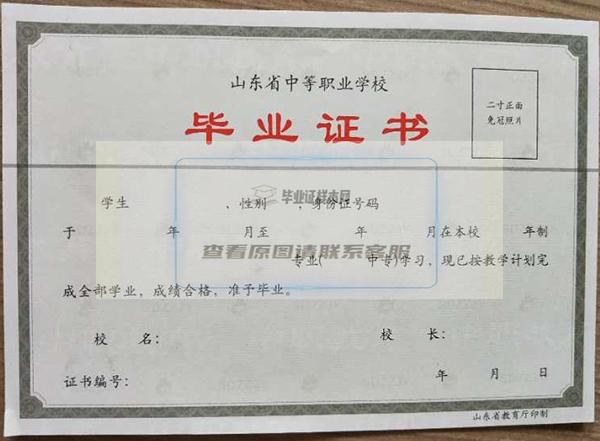 山东省中等职业学校
毕业证书
二寸正面
免冠照片
毕业证样本网
学生 、性别 、身份证号码
于 年 月至 年 月在本校 年制
查看原图请联系客服
专业( 中专)学习，现已按教学计划完
成全部学业，成绩合格，准予毕业。
校 名： 校 长：
证书编号： 年 月 日
山东省教育厅印制